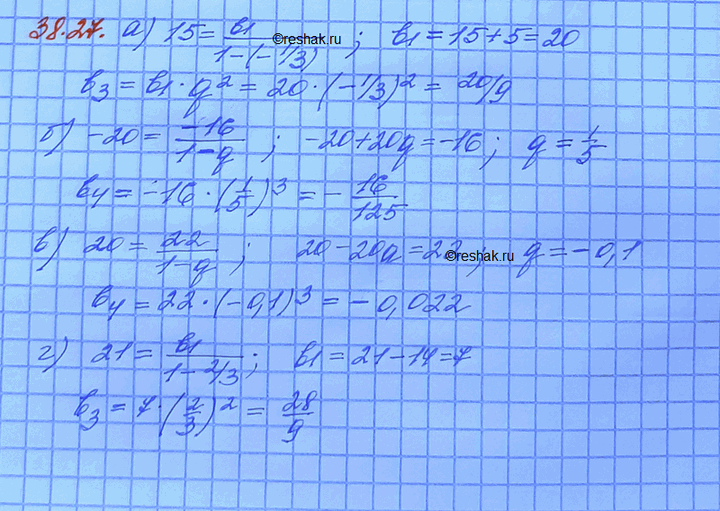 38.27. а) 15 = b1/(1-(-1/3)) ; b1 = 15+5 = 20
b3 = b1 · q² = 20 · (-1/3)² = 20/9
б) -20 = -16/(1-q) ; -20+20q = -16 ; q = 1/5
b4 = -16 · (1/5)³ = - 16/125
в) 20 = 22/(1-q) ; 20-20q = 22 ; q = -0,1
b4 = 22 · (-0,1)³ = -0,022
г) 21 = b1/(1-2/3) ; b1 = 21-14 = 7
b3 = 7 · (2/3)² = 28/9
©reshak.ru
©reshak.ru